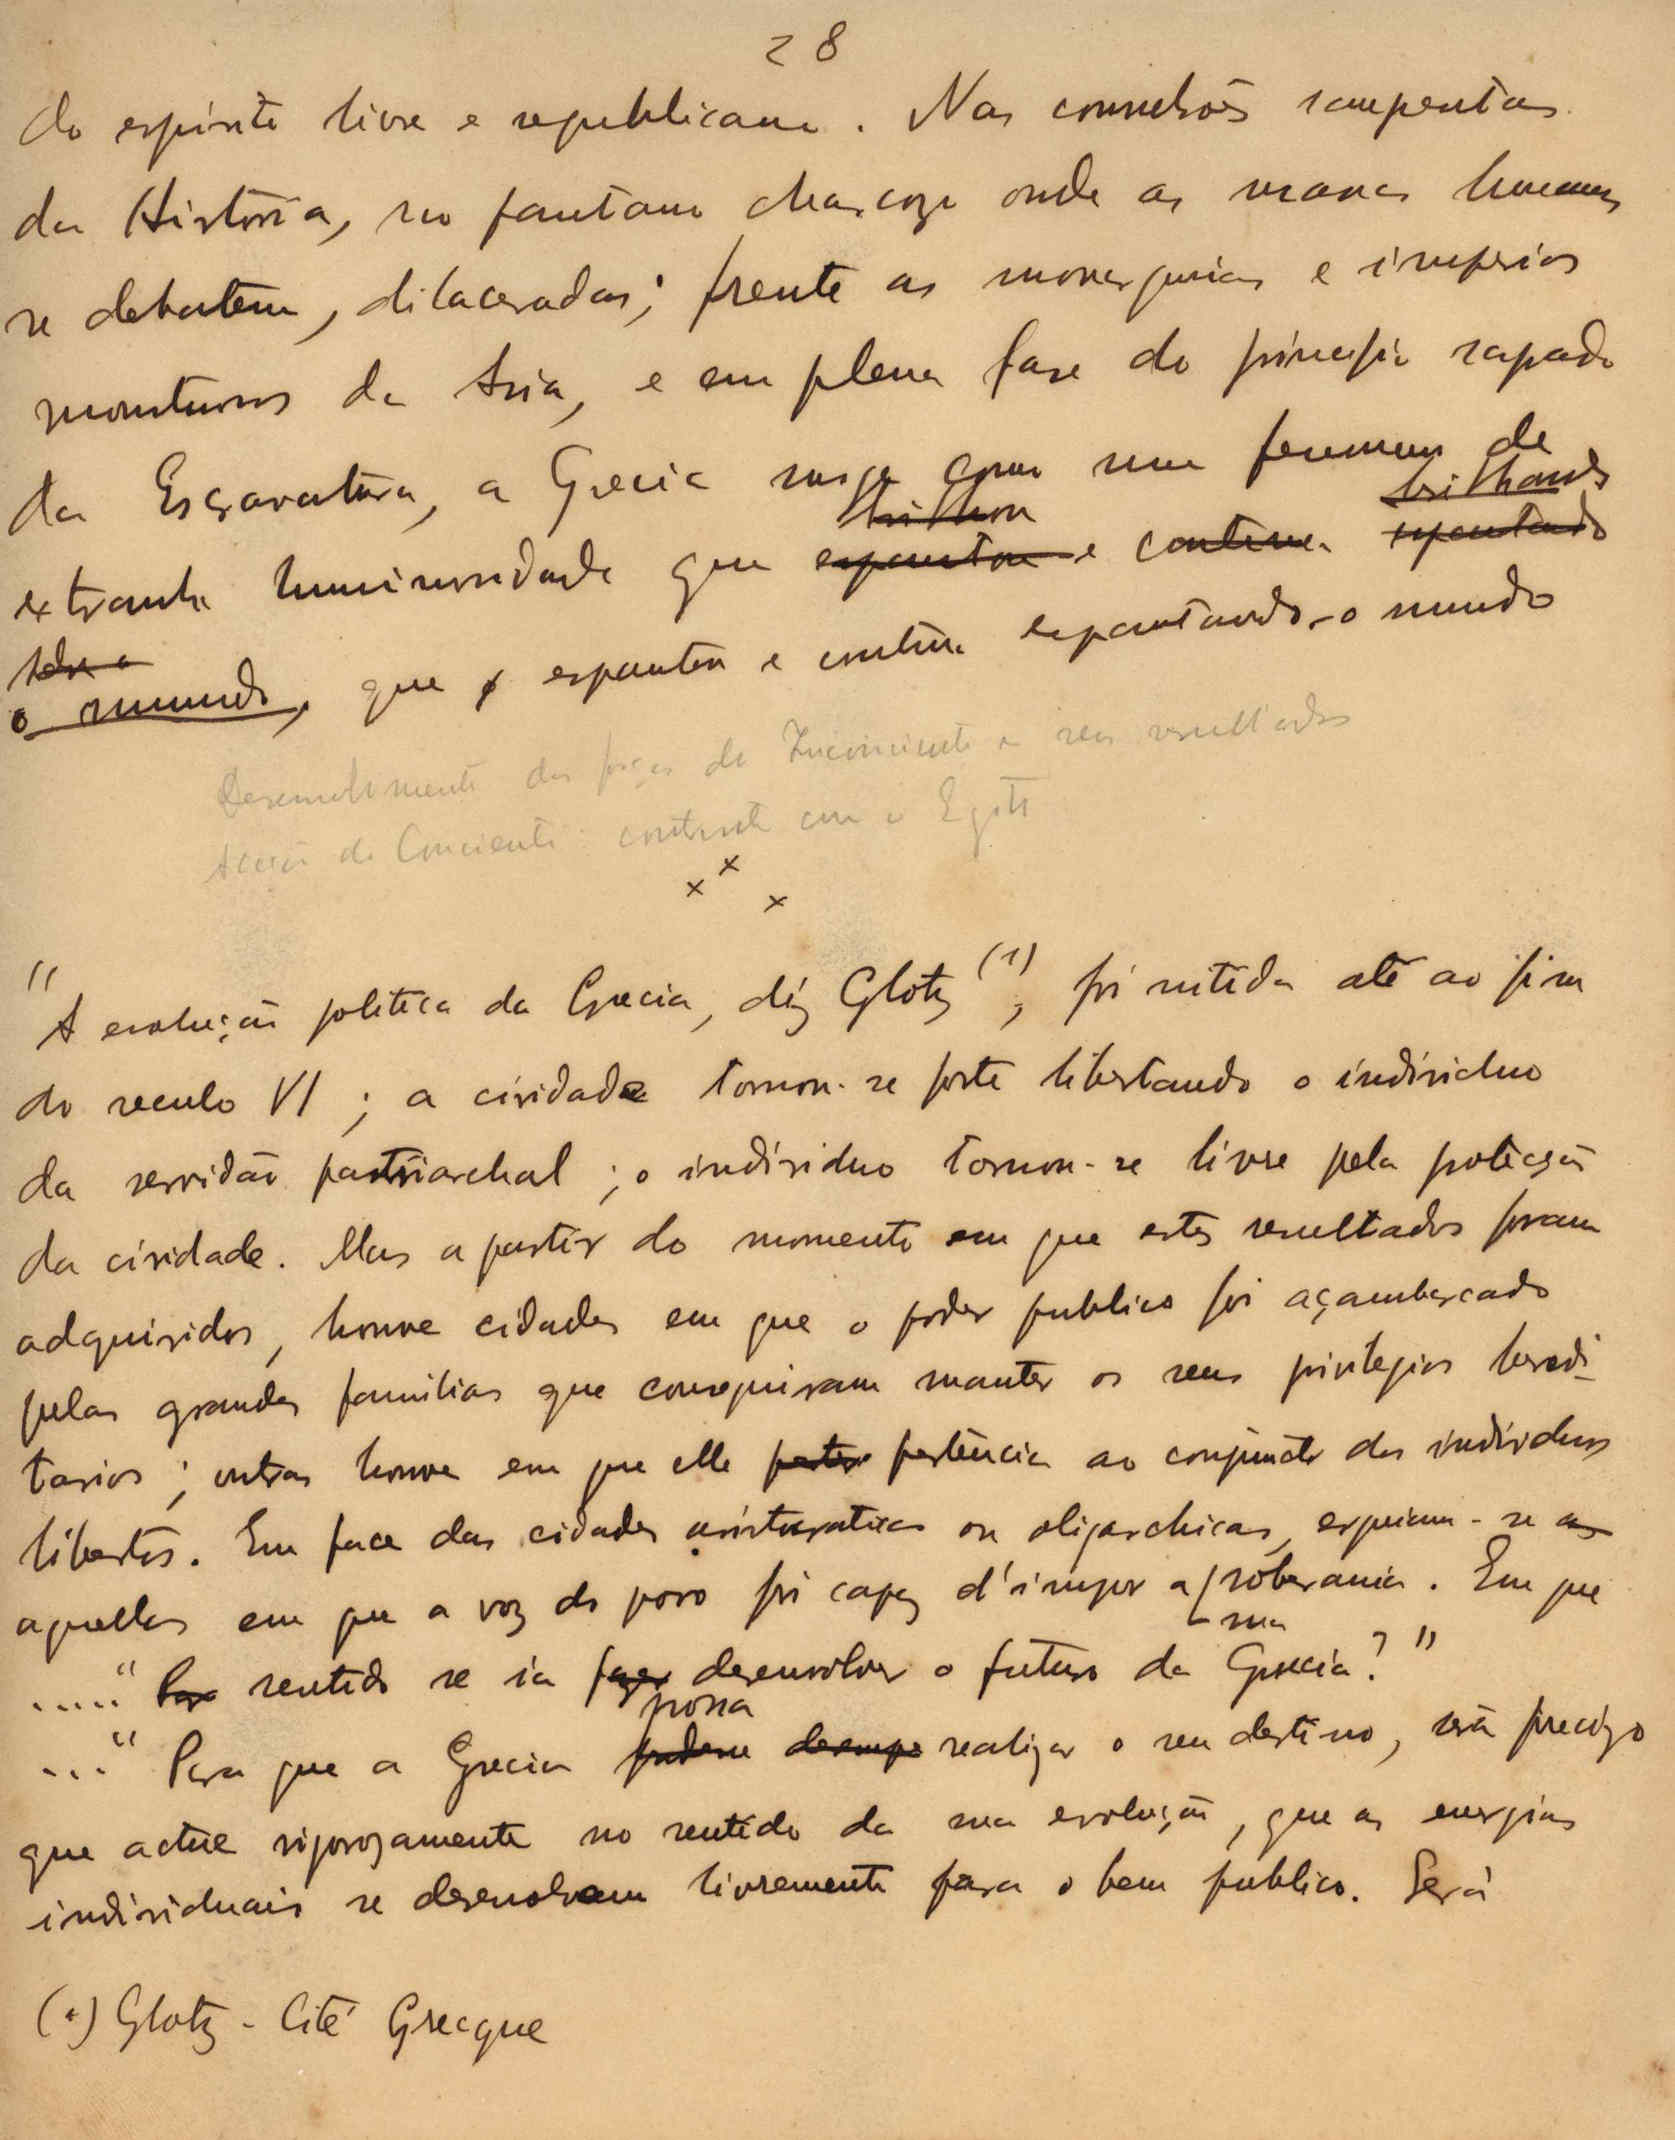 28
do espirito livre e republicano. Nas convulsões
da Historia, no pantano onde as massas humanas
se debatem, dilaceradas; frente as monarquias e imperios
monstruosos da Asia, e em plena fase do principio sagrado
da Escravatura, a Grecia surge como um fenomeno de
brilhou brilhando
extranha luminosidade que espantou e continua espantando
sobre o
o mundo, que espantou e continua espantando-o mundo
Desenvolvimento das forças do Inconciente e seus resultados
Acção do Conciente: contraste com o Egito
x x x
"A evolução politica da Grecia, diz Glotz (1), foi nitida até ao fim
do seculo VI; a cividade tornou-se forte libertando o individuo
da servidão patriarchal; o individuo tornou-se livre pela protecção
da cividade. Mas a partir do momento em que estes resultados foram
adquiridos, houve cidades em que o poder publico foi açambarcado
pelas grandes familias que conseguiram manter os seus privilegios heredi-
tarios; outras houve em que elle pertencia ao conjuncto dos individuos
libertos. Em face das cidades aristocraticas ou oligarchicas, erguiam-se as
aquellas em que a voz do povo foi capaz d'impor a soberania. Em que
sua
....." Para sentido se ia fazer desenvolver o futuro da Grecia?"
possa
..." Para que a Grecia pudesse realizar o seu destino, será precizo
que actue rigorozamente no sentido da sua evolução, que as energias
individuais se desenvolvam livremente para o bem publico. Será
(1) Glotz - Cité Grecque